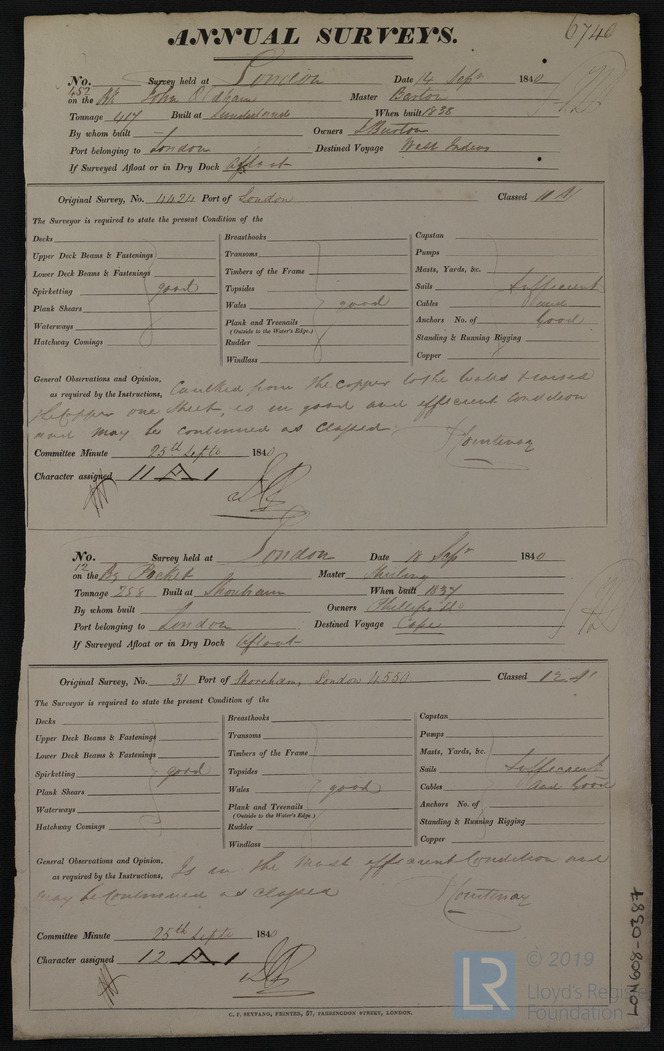 6740
ANNUAL SURVEYS.
No. 452 Survey held at London Date 14 Sept 1840
on the Bk John Oldham Master Barton
Tonnage 417 Built at Sunderland When built 1838
By whom built Owners J Burton
Port belonging to London Destined Voyage West Indies
If Surveyed Afloat or in Dry Dock Afloat
Original Survey, No. 4424 Port of London Classed 11 A1
The Surveyor is required to state the present Condition of the
Decks
Upper Deck Beams & Fastenings
Lower Deck Beams & Fastenings
Spirketting good
Plank Shears
Waterways
Hatchway Comings
Breasthooks
Transoms
Timbers of the Frame
Topsides
Wales good
Plank and Treenails
(Outside to the Water's Edge.)
Rudder
Windlass
Capstan
Pumps
Masts, Yards, &c.
Sails Sufficient
Cables and
Anchors No. of Good
Standing & Running Rigging
Copper
General Observations and Opinion, Caulked from the copper to the Wales & raised
as required by the Instructions,
the copper one sheet, is in good and efficient condition
and may be continued as classed
J Courtenay
Committee Minute 25th Septr 1840
Character assigned 11 A 1
No. 12 Survey held at London Date 18 Sept 1840
on the Bg Packet Master
Tonnage 258 Built at Shoreham When built 1837
By whom built Owners Phillipps & Co
Port belonging to London Destined Voyage Cape
If Surveyed Afloat or in Dry Dock Afloat
Original Survey, No. 31 Port of Shoreham, London 4550 Classed 12 A1
The Surveyor is required to state the present Condition of the
Decks
Upper Deck Beams & Fastenings
Lower Deck Beams & Fastenings
Spirketting good
Plank Shears
Waterways
Hatchway Comings
Breasthooks
Transoms
Timbers of the Frame
Topsides
Wales good
Plank and Treenails
(Outside to the Water's Edge.)
Rudder
Windlass
Capstan
Pumps
Masts, Yards, &c.
Sails Sufficient
Cables and Good
Anchors No. of
Standing & Running Rigging
Copper
General Observations and Opinion, Is in the most efficient Condition and
as required by the Instructions,
may be Continued as classed
J Courtenay
Committee Minute 25th Septr 1840
Character assigned 12 A 1
C. F. SEYFANG, PRINTER, 57, FARRINGDON STREET, LONDON.
LON608-0387
LR
© 2019
Lloyd's Register
Foundation